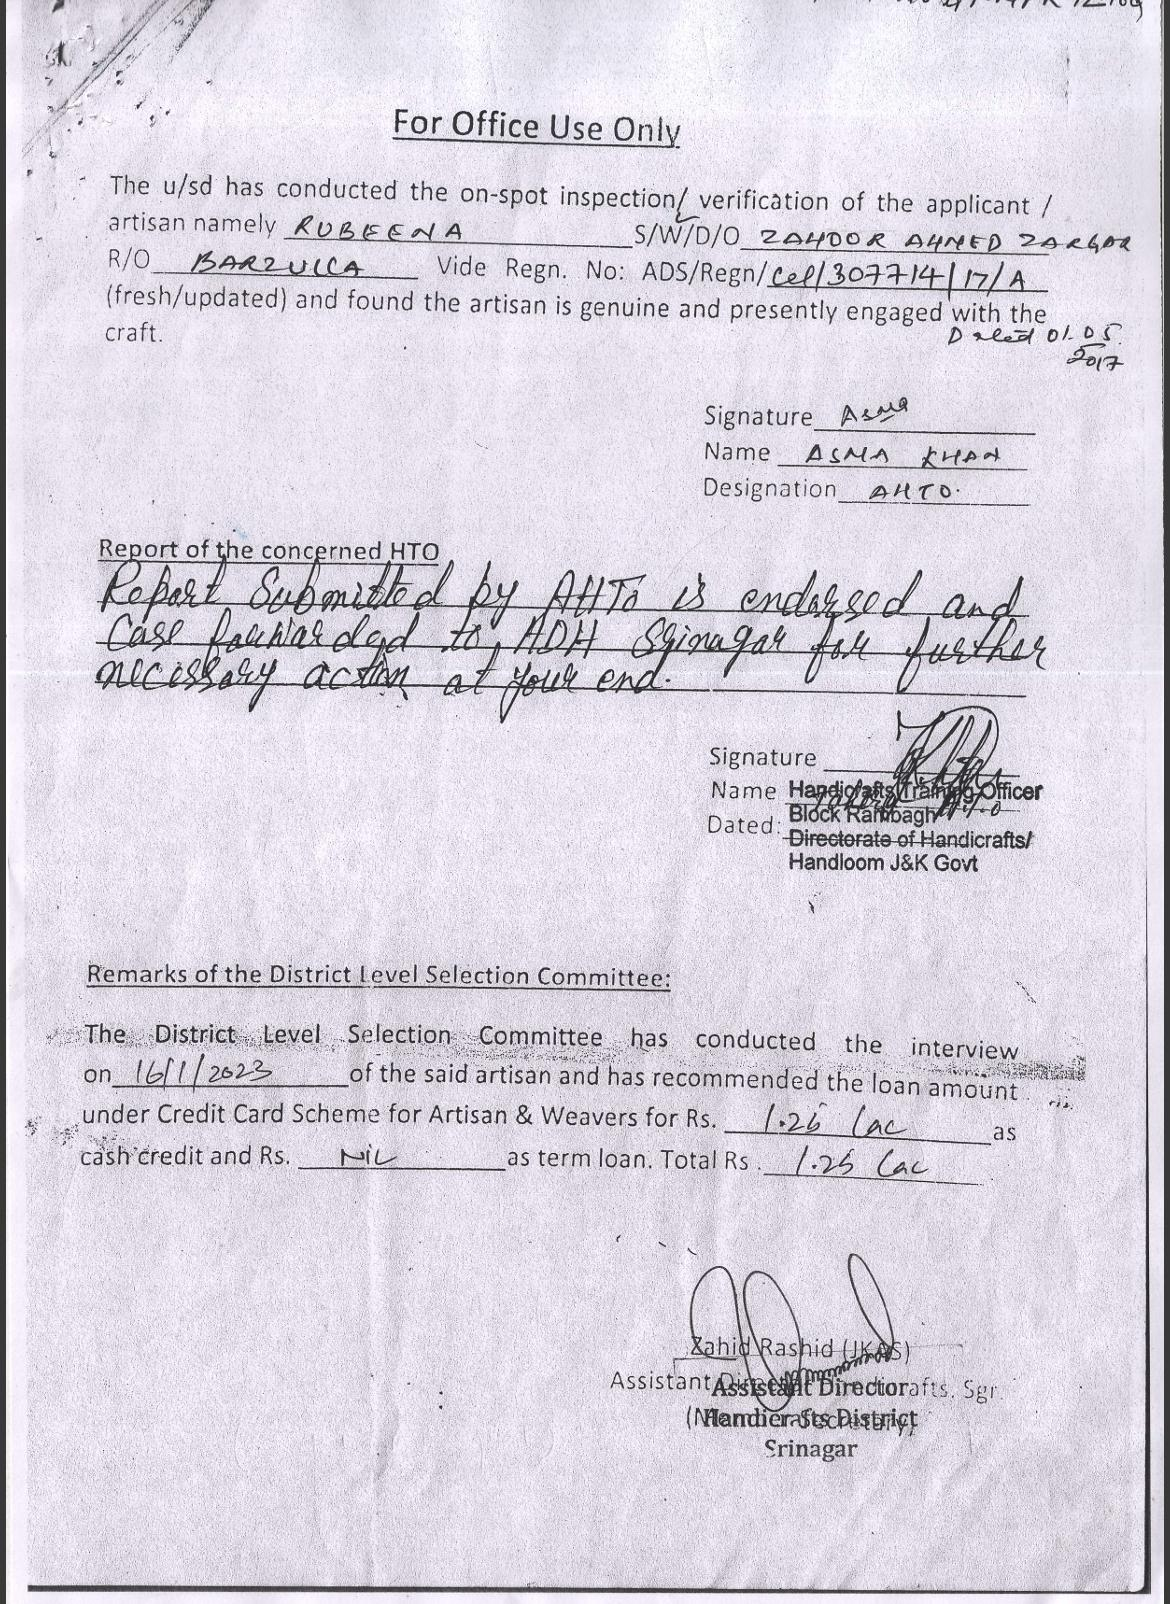 For Office Use Only
The u/sd has conducted the on-spot inspection/ verification of the applicant /
artisan namely RUBEENA S/W/D/O ZAHOOR AHMED ZARGAR
R/O BARZULLA Vide Regn. No: ADS/Regn/Cel/307714/17/A
(fresh/updated) and found the artisan is genuine and presently engaged with the
craft. Dated 01.05.
2017
Signature Asma
Name ASMA KHAN
Designation AHTO.
Report of the concerned HTO
Report Submitted by AHTo is endorsed and
Case forwarded to, ADH Srinagar for further
necessary action at your end.
Signature
Name Handicrafts Training Officer
Block Rambagh
Dated: Directorate of Handicrafts/
Handloom J&K Govt
Remarks of the District Level Selection Committee:
The District Level Selection Committee has conducted the interview
on 16/1/2023 of the said artisan and has recommended the loan amount
under Credit Card Scheme for Artisan & Weavers for Rs. 1.25 Lac as
cash credit and Rs. NIL as term loan. Total Rs . 1.25 Lac
Zahid Rashid (JKAS)
Assistant Assistant Director Sgr.
Handicrafts District
Srinagar